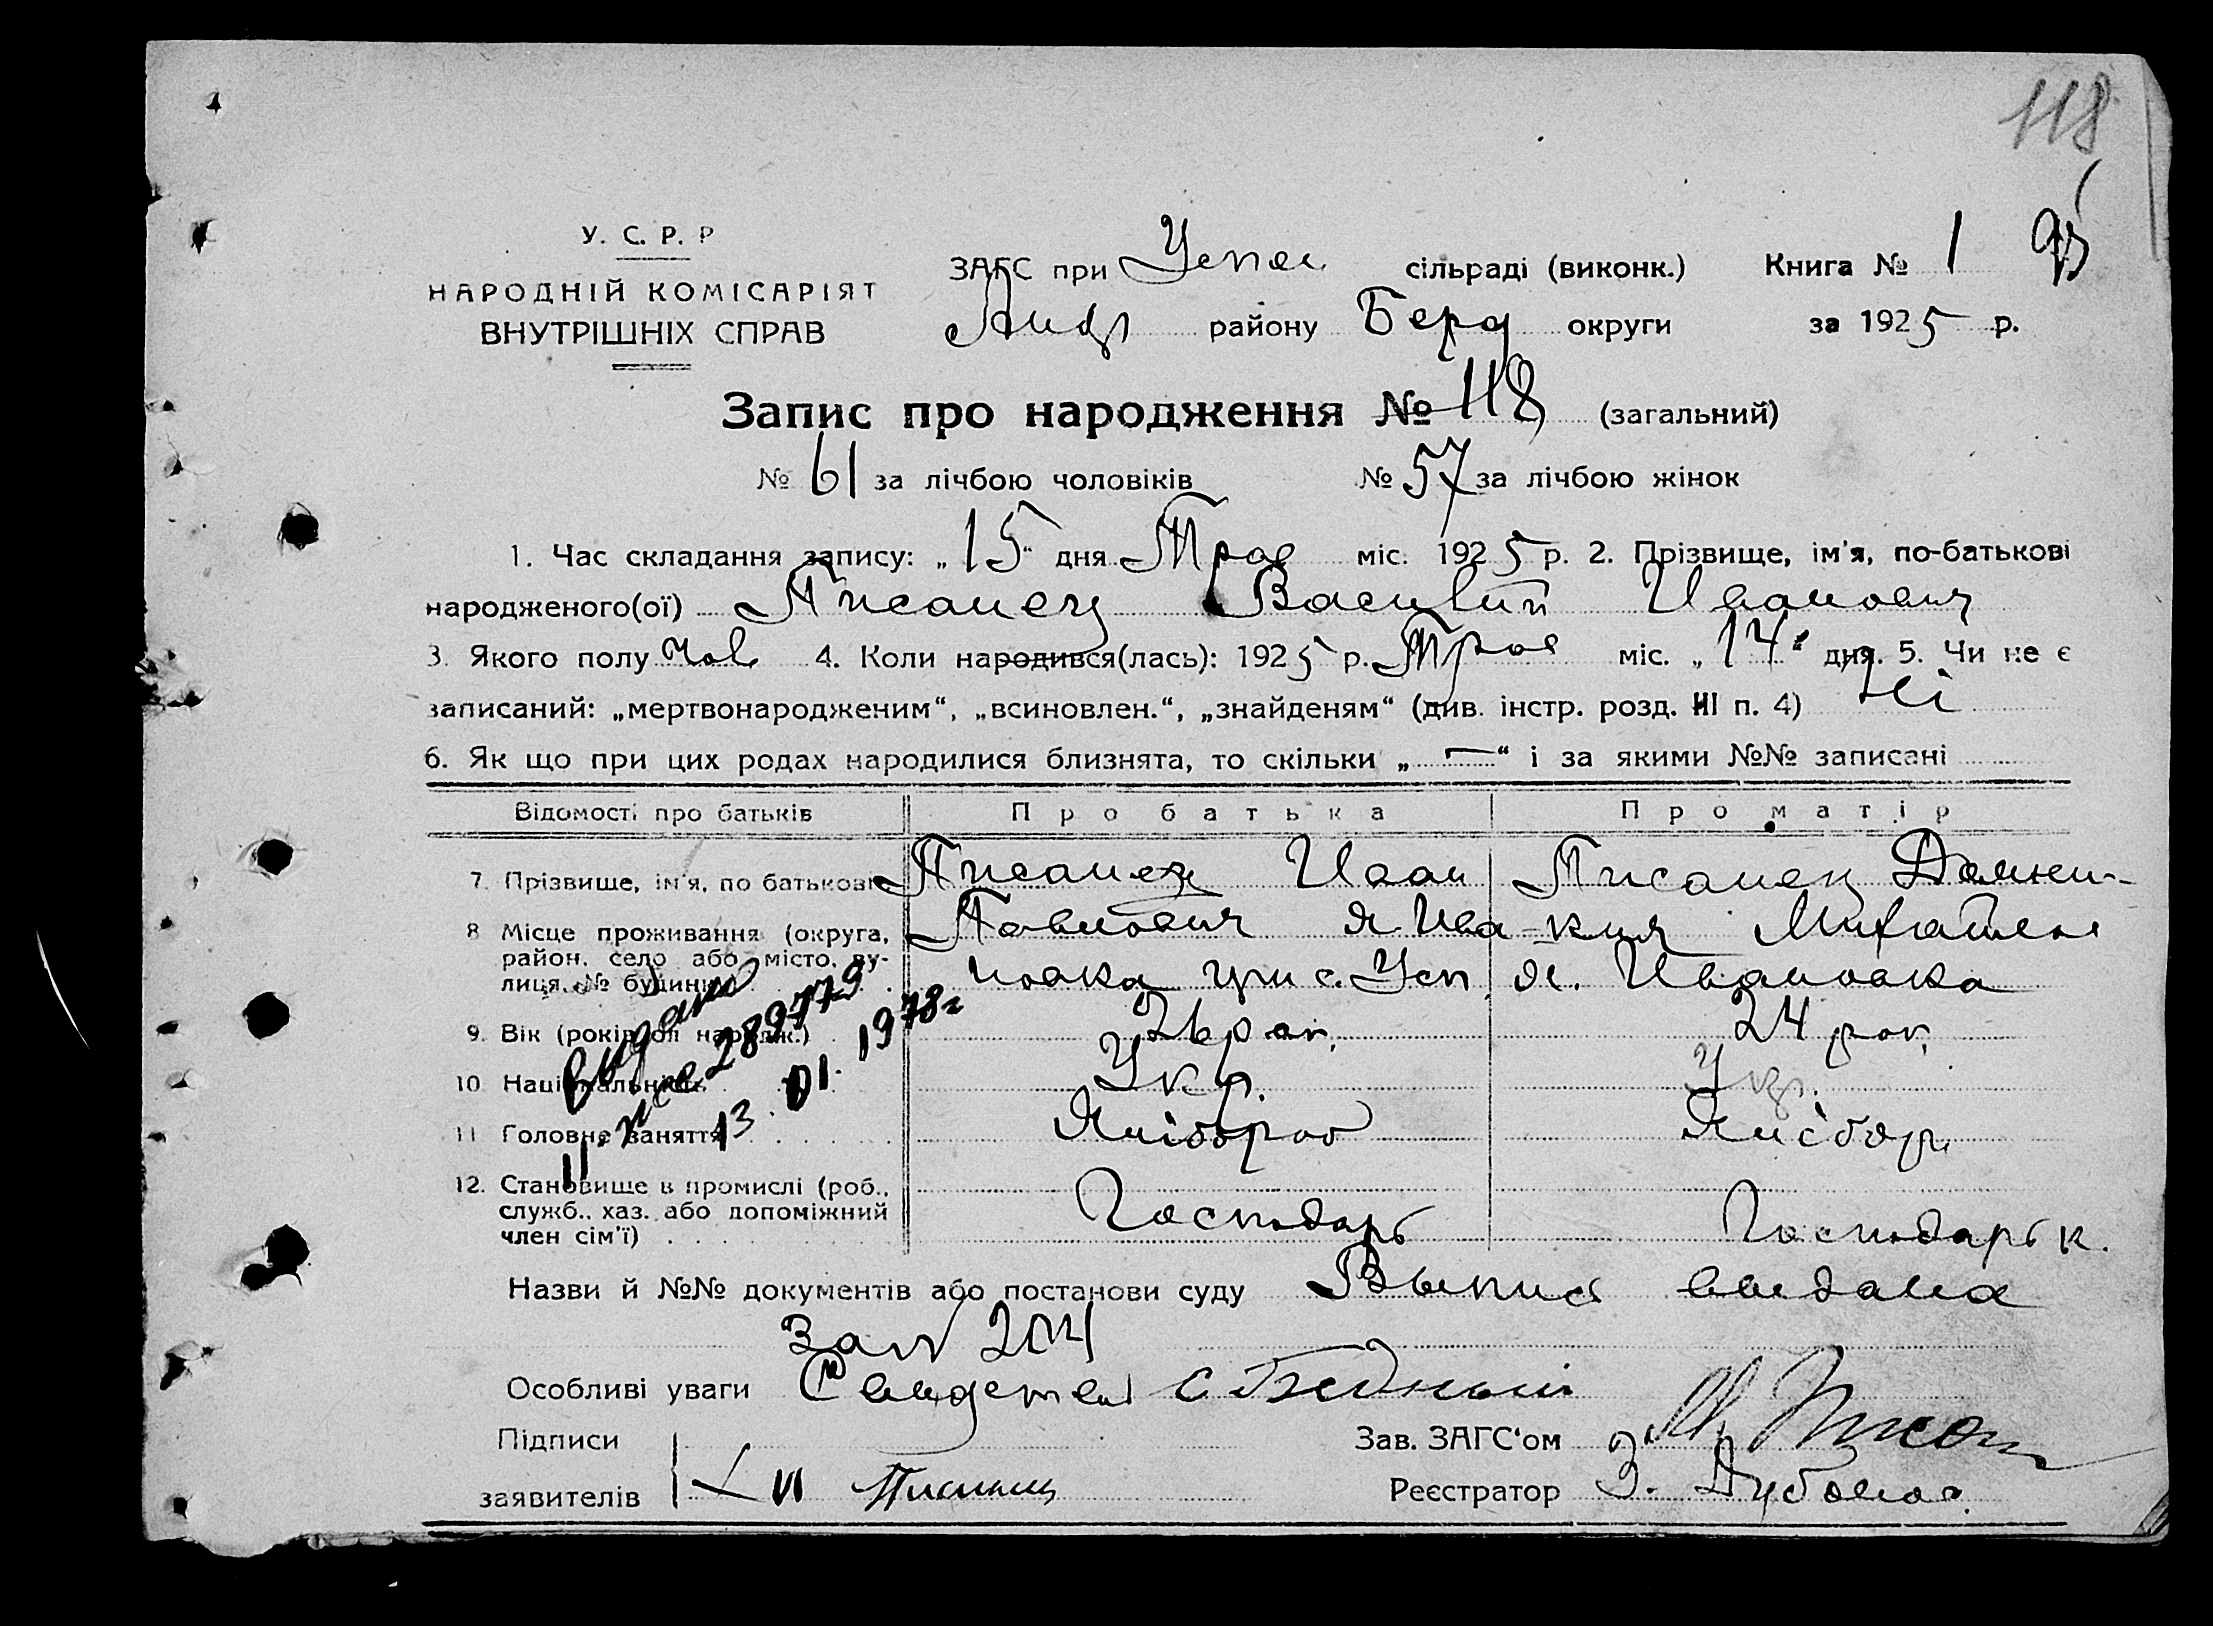 118
У. С. Р. Р
НАРОДНІЙ КОМІСАРІЯТ
ВНУТРІШНІХ СПРАВ
ЗАГС при Успен сільраді (виконк.) Книга № 1
району Берд округи за 1925 р.
Запис про народження № 118 (загальний)
№ 61 за лічбою чоловіків № 57 за лічбою жінок
1. Час складання запису: „15“ дня Трав міс. 1925 р. 2. Прізвище, ім'я, по-батькові
народженого(ої) Писанец Василий Иванович
3. Якого полу чол 4. Коли народився(лась): 1925 р. Трав міс. „14“ дня. 5. Чи не є
записаний: „мертвонародженим“, „всиновлен.“, „знайденям“ (див. інстр. розд. III п. 4) Ні
6. Як що при цих родах народилися близнята, то скільки „—“ і за якими №№ записані
Відомості про батьків Про батька Про матір
7. Прізвище, ім'я, по батькові Писанец Иван Писанец Домни-
8 Місце проживання (округа, Павлович х. Ива кия
район, село або місто, ву- новка при с. Усп. х. Ивановка
лиця, № будинку)
9. Вік (років від народж.) 26 рок. 24 рок.
10 Національність Укр. Укр.
11 Головне заняття Хлібороб Хлібор.
12. Становище в промислі (роб.,
служб., хаз. або допоміжний Господарь Господарьк.
член сім'ї)
видано
289779
13.01.1978г
Назви й №№ документів або постанови суду Выпись выдана
за № 204
Особливі уваги
Підписи Зав. ЗАГС'ом
заявителів И Писанец Реєстратор З.